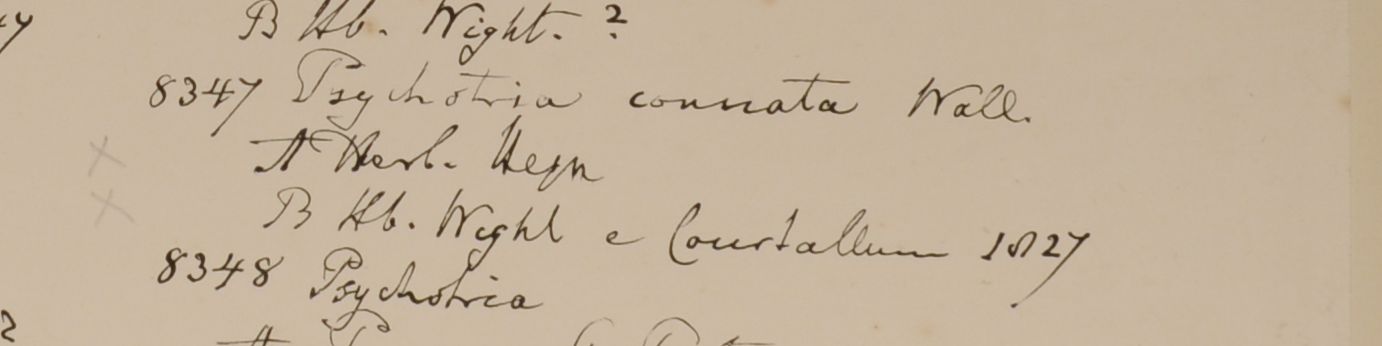 B Hb. Wight. ?
8347 Psychotria connata Wall.
A Herb. Heyn
B Hb. Wight e Courtallum 1827
8348 Psychotria